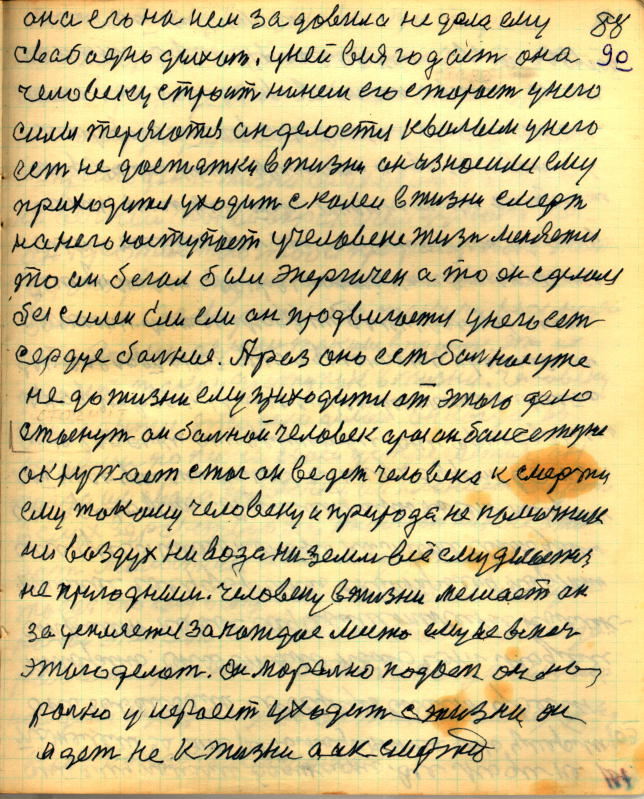 она его на нем задовила не дала ему 88
свабадно дыхат. у ней вся годаст она 90
человеку строит на нем его старает у него
силы теряютя он делается квалым у него
ест не достатки в жизни он износили ему
приходится уходит с колеи в жизни смерт
на него наступает у человека жизн меняется
то он бегал был энергичен а то он сделал
без силен ели ели он продвигается у него ест
сердце балное. А раз оно ест балное уже
не до жизни ему приходится от этого дела
отойти он балной человек а раз он
окружает стал он ведет человека к смерти
ему такому человеку и природа не помочник
ни воздух ни вода ни земля все ему
не пригодным. человеку в жизни мешает он
за цепляется за каждое место ему не в моч
этого делат. Он морално падает он мо
рално умирает уходит с жизни он
идет не к жизни а к смерти